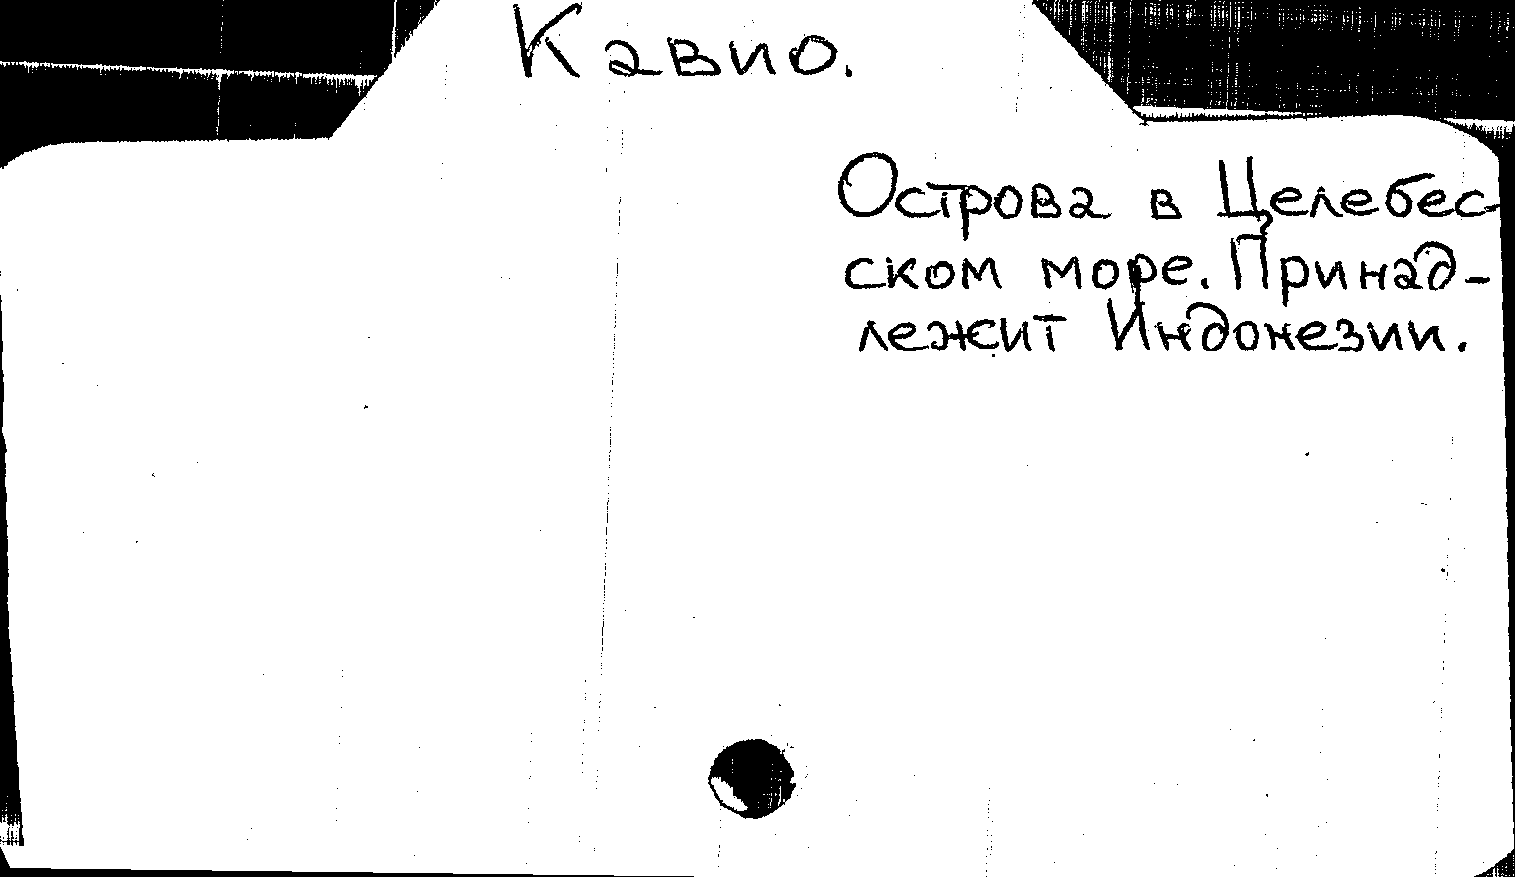 Кавио.
Острова в Целебес-
ском море. Принад-
лежит Индонезии.